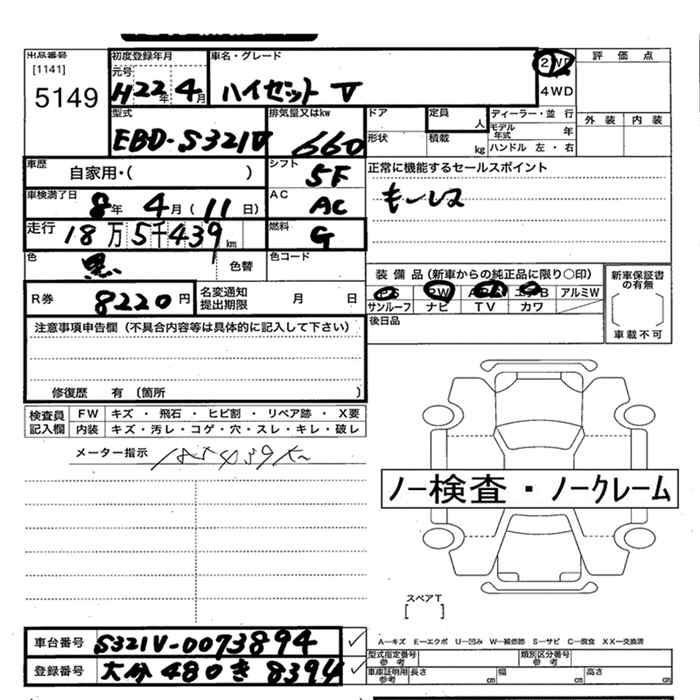 出品番号 初度登録年月 車名・グレード 2WD 評価点
[1141] 元号 4WD
5149 H22年4月 ハイゼット V
型式 排気量又はkw ドア 定員 人 ディーラー・並行 外装 内装
EBD-S321V 660 形状 積載 kg モデル年式 年
ハンドル 左・右
車歴 自家用・( ) シフト 5F 正常に機能するセールスポイント
車検満了日 8年4月(11日) AC AC
走行 18万5千439km 燃料 G
色 黒 色替 色コード 装備品(新車からの純正品に限り○印) 新車保証書の有無
R券 8220円 名変通知提出期限 月 日 PS PW ABS エアB アルミW
サンルーフ ナビ TV カワ 車載不可
注意事項申告欄(不具合内容等は具体的に記入して下さい) 後日品
修復歴 有 (箇所 )
検査員記入欄 FW キズ・飛石・ヒビ割・リペア跡・X要
内装 キズ・汚レ・コゲ・穴・スレ・キレ・破レ
メーター指示 185439km
ノー検査・ノークレーム
スペアT
[ ]
A−キズ E−エクボ U−凹み W−補修跡 S−サビ C−腐食 XX−交換済
車台番号 S321V-0073894 型式指定番号 参考 類別区分番号 参考
登録番号 大分480き8394 車庫証明用 参考 長さ cm 幅 cm 高さ cm